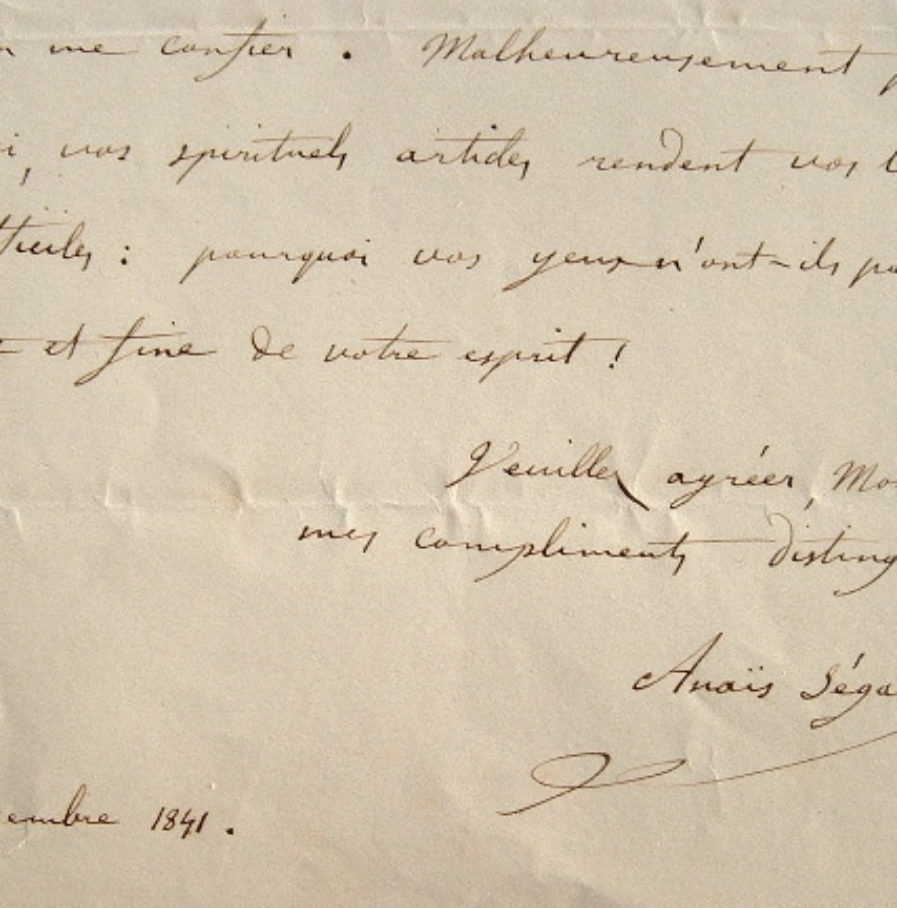 me confier. Malheureusement
vos spirituels articles rendent vos
pourquoi vos yeux n'ont-ils
et fine de votre esprit !
Veuillez agréer,
mes compliments
Anaïs
1841.